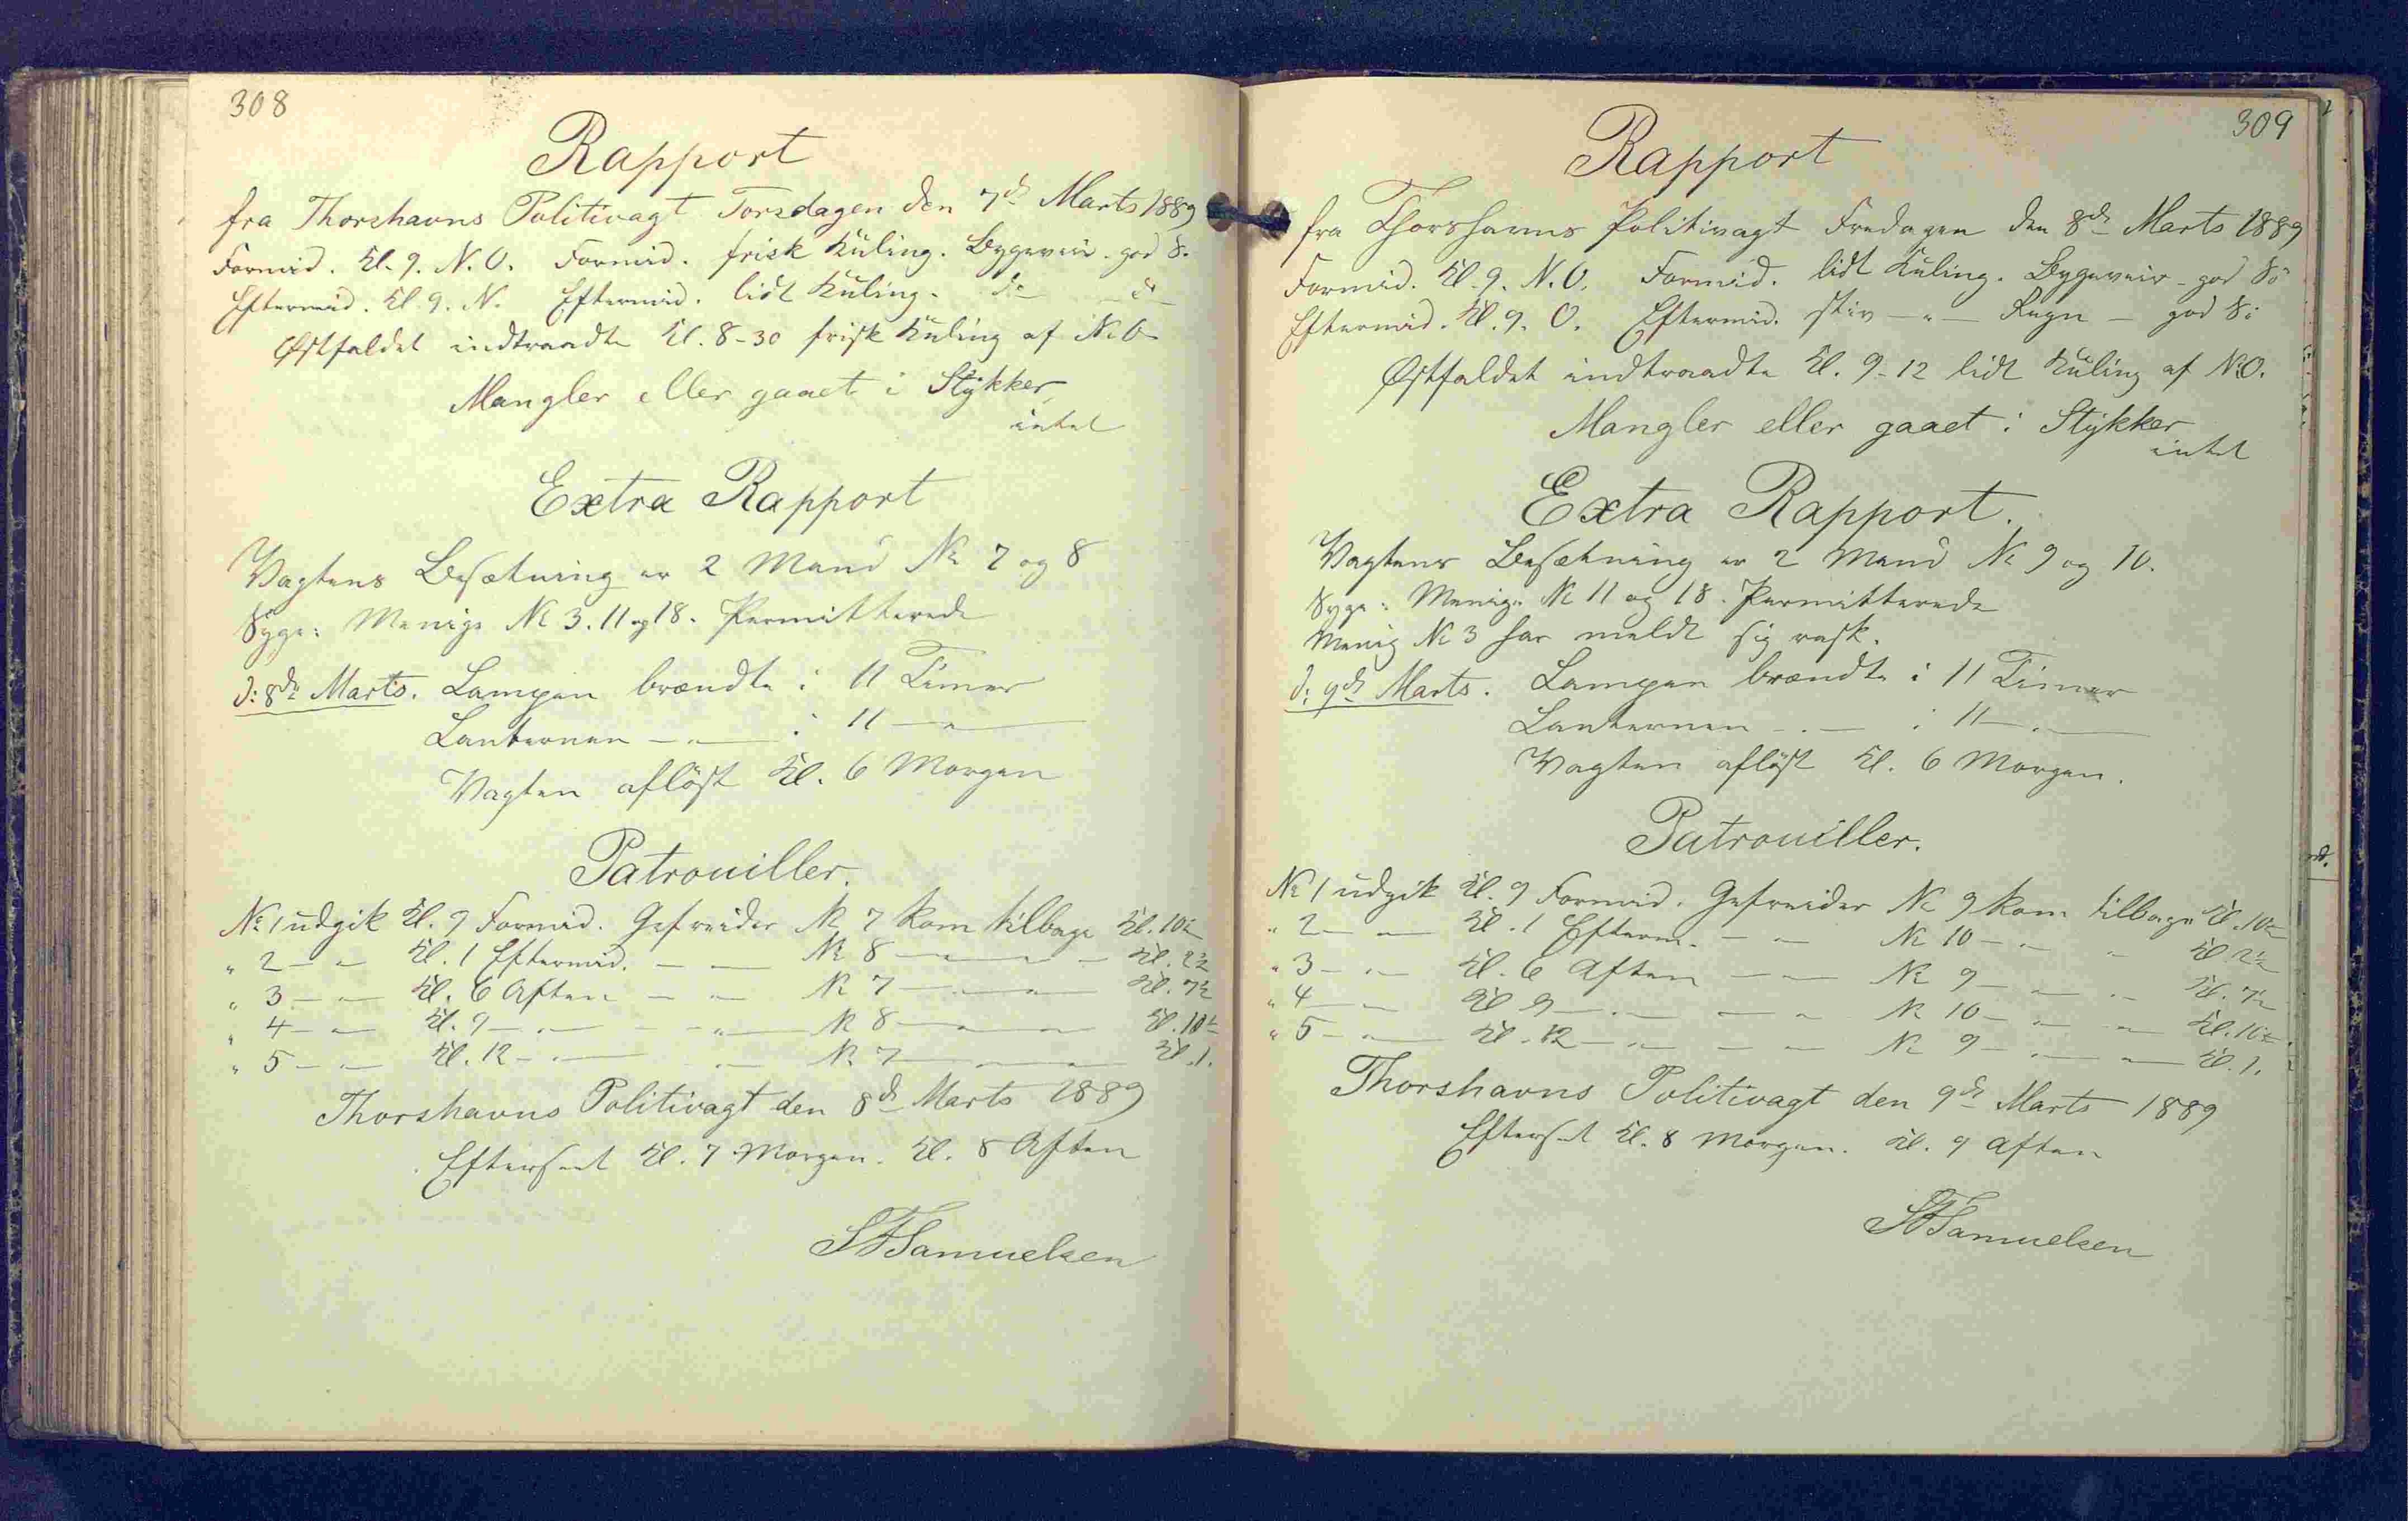 308
Rapport
fra Thorshavns Politivagt Torsdagen den 7de Marts 1889
Formid. Kl. 9. N.O. Formid. frisk Kuling. Bygeveir. god S.
Eftermid. Kl. 9. N. Eftermid. lidt Kuling. do do
Østfaldet indtraadte Kl. 8-30 frisk Kuling af N.O
Mangler eller gaaet i Stykker
intet
Extra Rapport
Vagtens Besætning er 2 Mand No 7 og 8
Syge: Menige No 3. 11 og 18. Permitterede
d: 8de Marts. Lampen brændte i 11 Timer
Lanternen — " — i 11 — " —
Vagten afløst Kl. 6 Morgen
Patrouiller.
No 1 udgik Kl. 9 Formid. Gefreider No 7 kom tilbage Kl. 10½
" 2 — " — Kl. 1 Eftermid. — " — No 8 — " — " — Kl. 2½
" 3 — " — Kl. 6 Aften — " — No 7 — " — " — Kl. 7½
" 4 — " — Kl. 9 — " — — " — No 8 — " — " — Kl. 10½
" 5 — " — Kl. 12 — " — " — No 7 — " — " — Kl. 1.
Thorshavns Politivagt den 8de Marts 1889
Efterseet Kl. 7 Morgen. Kl. 8 Aften
SFSamuelsen
309
Rapport
fra Thorshavns Politivagt Fredagen den 8de Marts 1889
Formid. Kl. 9. N.O. Formid. lidt Kuling. Bygeveir - god Sö
Eftermid. Kl. 9. O. Eftermid. stiv — " — Regn — god Sö
Østfaldet indtraadte Kl. 9-12 lidt Kuling af N.O.
Mangler eller gaaet i Stykker
intet
Extra Rapport.
Vagtens Besætning er 2 Mand No 9 og 10.
Syge: Menige No 11 og 18. Permitterede
Menig No 3 har meldt sig rask.
d: 9de Marts. Lampen brændte i 11 Timer
Lanternen — " — i 11 — " —
Vagten afløst Kl. 6 Morgen.
Patrouiller.
No 1 udgik Kl. 9 Formid. Gefreider No 9 kom tilbage Kl. 10½
" 2 — " — Kl. 1 Efterm. — " — No 10 — " — " Kl 2½
" 3 — " — Kl. 6 Aften — " — No 9 — " — " — Kl. 7½
" 4 — " — Kl 9 — " — — " — No 10 — " — " — Kl. 10½
" 5 — " — Kl. 12 — " — — " — No 9 — " — " — Kl. 1.
Thorshavns Politivagt den 9de Marts 1889
Efterset Kl. 8 Morgen. Kl. 9 Aften
SFSamuelsen